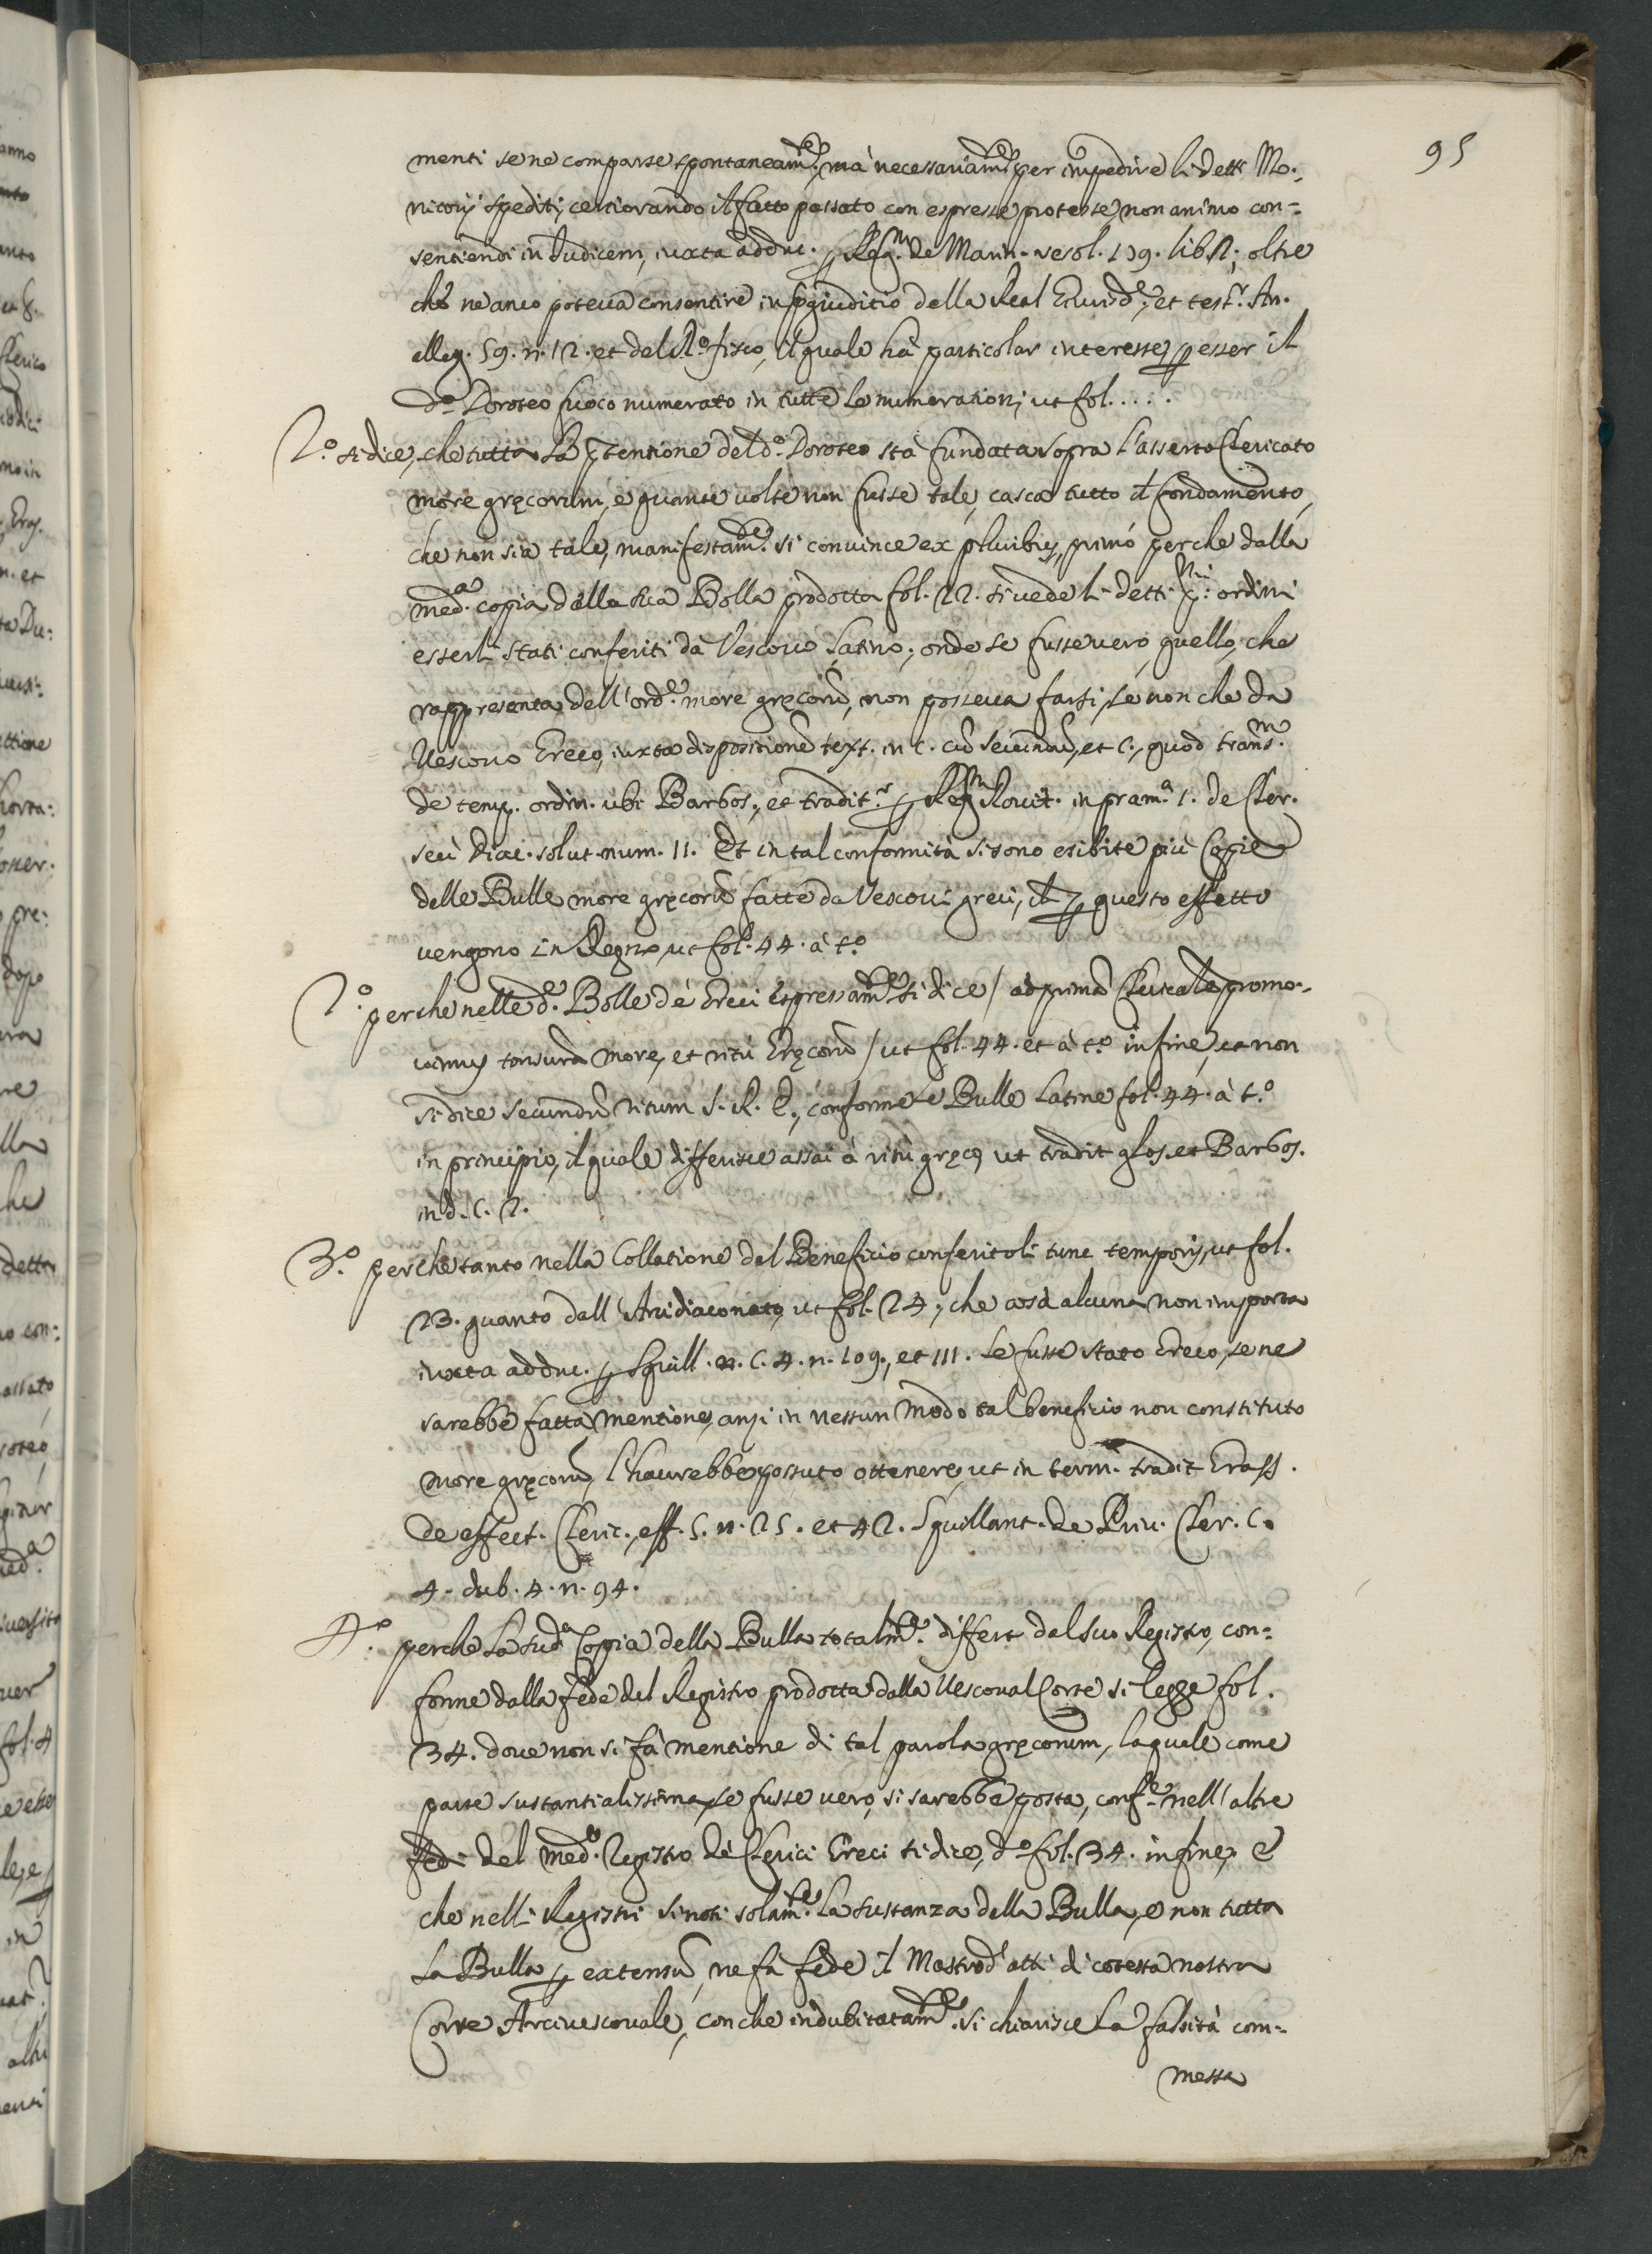 95
menti se ne comparse spontaneam.te, mà necessariam.te per impedire li detti Mo:
nitorij spediti, certiorando il fatto passato con espresse proteste, non animo con=
sentiendi in Iudicem, iuxta adduc. p Reg.m de Marin. resol. 179. lib. 2; oltre
che ne anco poteva consentire in pgiuditio della Real Giurisd.e, et test.r An.
alleg. 59. n. 12. et del R.o fisco, il quale hà particolar interesse, p esser il
d.o Doroteo fuoco numerato in tutte le numerationi, ut fol.....
2.o si dice, che tutta la ptensione del d.o Doroteo stà fundata sopra l'asserto Clericato
more gręcorum, e quante volte non fusse tale, casca tutto il fondamento,
che non sia tale, manifestam.te si convince ex pluribus, primò perche dalla
med.a copia della sua Bolla prodotta fol. 22. si vede li detti p.mi ordini
esserli stati conferiti dà Vescovo Latino, onde se fusse vero, quello, che
rappresenta dell'ord.e more gręcorũ, non posseva farsi, se non che da
Vescovo Greco, iuxta dispositionẽ text. in c. cũ secundũ, et c., quod trans.m
de temp. ordin. ubi Barbos., et tradit.r p Reg.m Rovit. in pram.a 1. de Cler.
seù Diac. solut. num. 11. Et in tal conformità si sono esibite più Copie
delle Bulle more gręcorũ fatte da Vescovi greci, ch p questo effetto
vengono in Regno, ut fol. 44. à t.o
2.o perche nelle d.e Bolle dè Greci espressam.te si dice / ad primã Clericalẽ promo-
vimus tonsurã more, et ritù Gręcorũ / ut fol. 44. et à t.o in fine, et non
si dice secundũ ritum S. R. E., conforme le Bulle Latine fol. 44. à t.o
in principio, il quale differisce assai à ritù gręco, ut tradit glos. et Barbos.
in d. C. 2.
3.o perche tanto nella Collatione del Beneficio conferitoli tunc temporis, ut fol.
23. quanto dall'Arcidiaconato, ut fol. 24, che cosa alcuna non importa
iuxta adduc. p Squill. C. 4. n. 109., et 111. se fusse stato Greco, se ne
sarebbe fatta mentione, anzi in nessun modo tal beneficio non constituto
more gręcorũ, l'haverebbe possuto ottenere, ut in term. tradit Grass.
de effect. Cleric., eff. 5. n. 25. et 42. Squillant. de Priv. Cler. C.
4. dub. 4. n. 94.
4.o perche la sud.a Copia della Bulla totalm.te differe dal suo Registro, con=
forme dalla fede del Registro prodotta dalla Vescoval Corte si legge fol.
34. dove non si fà mentione di tal parola gręcorum, laquale come
parte sustantialissima, se fusse vero, si sarebbe posta, conf.e nell'altre
fedi del med.o Registro dè Clerici Greci si dice, d.o fol. 34. in fine, e
che nelli Registri si noti solam.te la sustanza della Bulla, e non tutta
la Bulla p extensũ, ne fà fede il Mastrod'atti di cotesta nostra
Corte Arcivescovale, con che indubitatam.te si chiarisce la falsità com=
messa